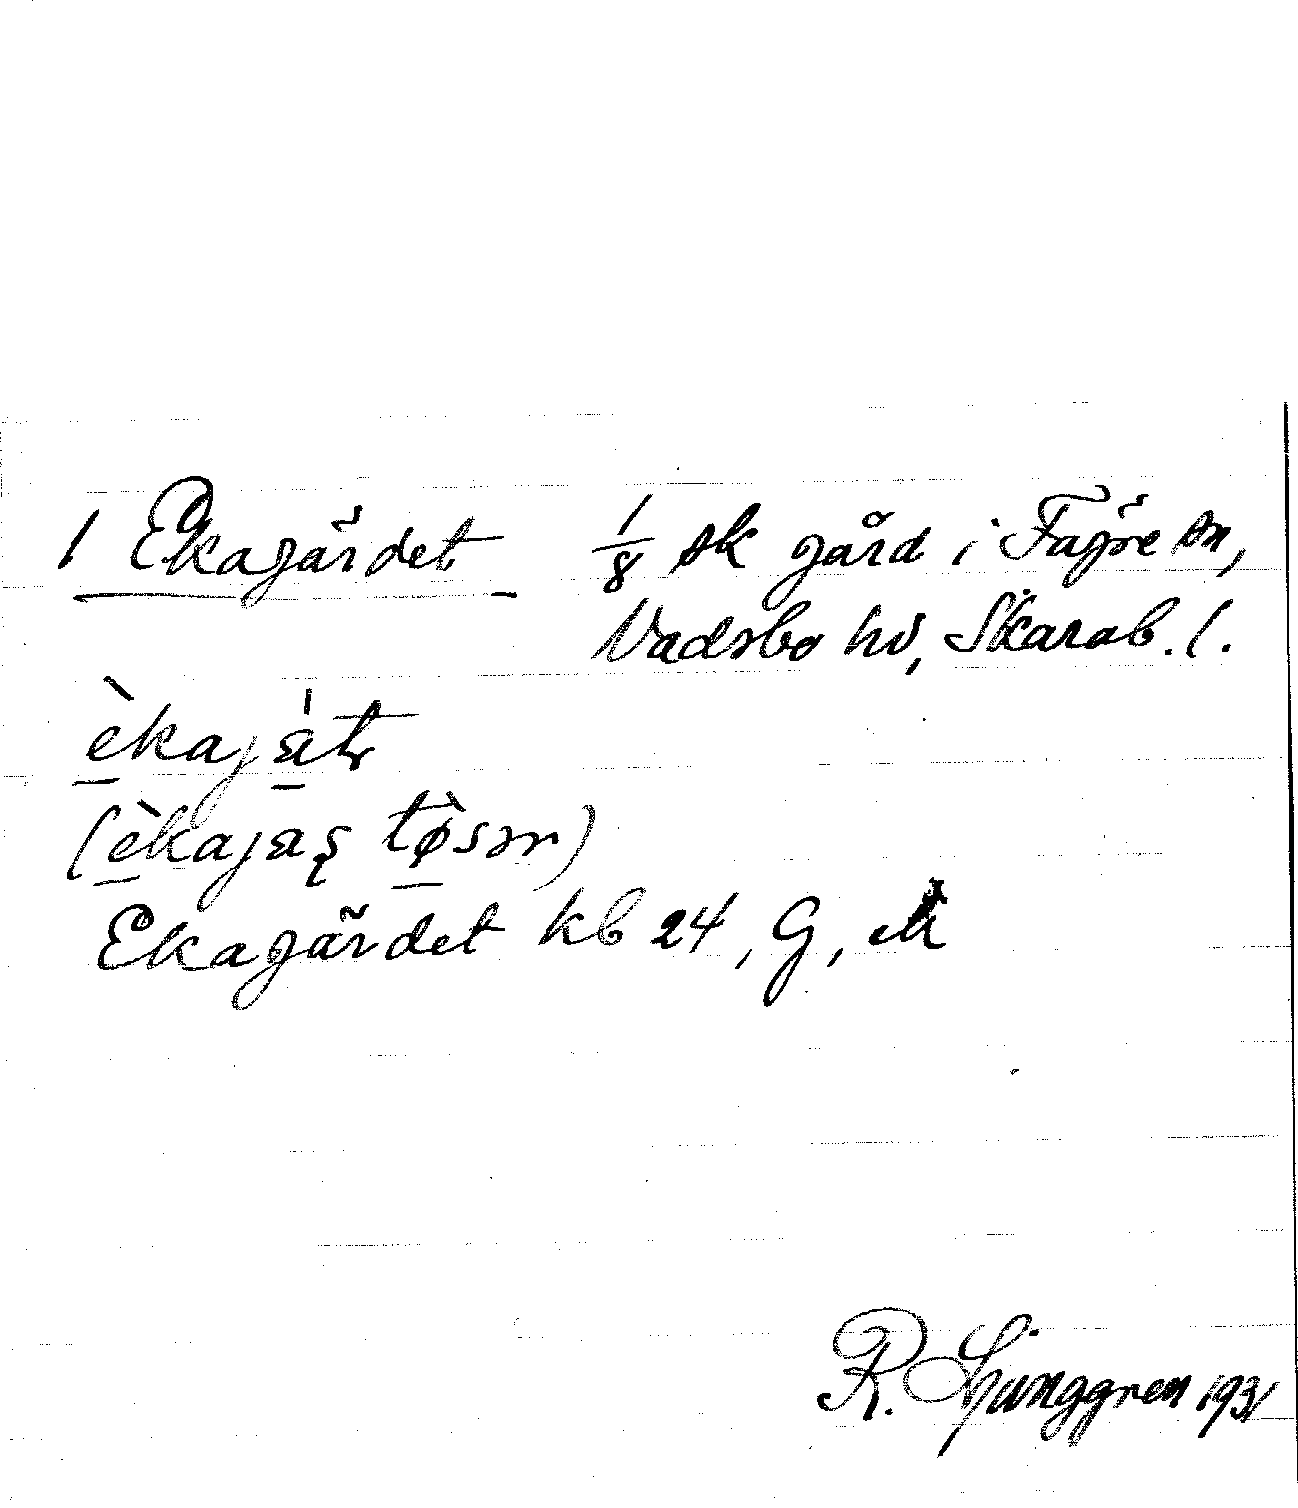 1 Ekagärdet 1/8 sk gård i Fägre sn,
Vadsbo hd, Skarab. l.
èkajät
(èkajäş tøsər)
Ekagärdet kb 24, G, M
R. Ljunggren 1931